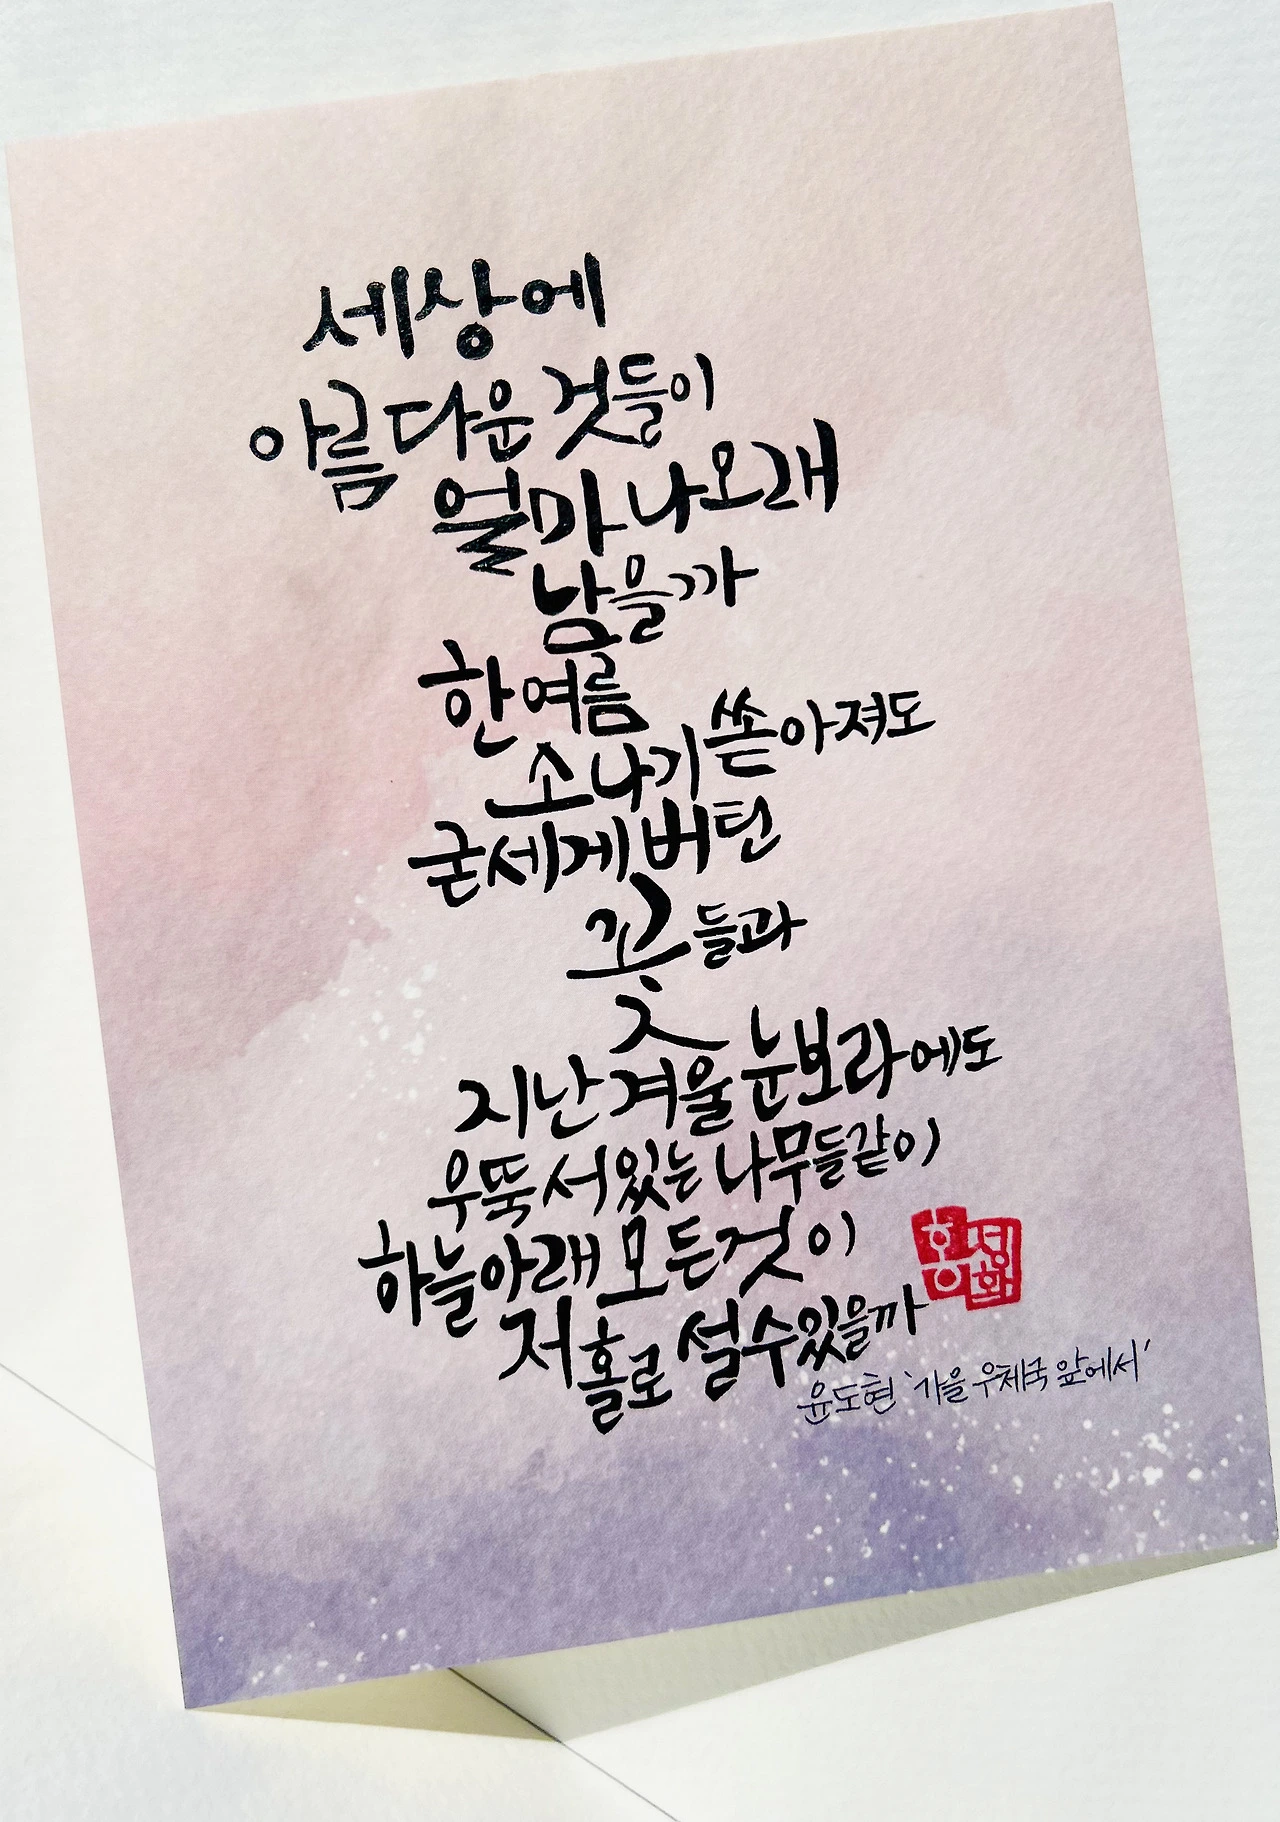 세상에
아름다운 것들이
얼마나 오래
남을까
한여름
소나기 쏟아져도
굳세게 버틴
꽃들과
지난 겨울 눈보라에도
우뚝 서 있는 나무들같이
하늘 아래 모든 것이
저 홀로 설 수 있을까
윤도현 '가을 우체국 앞에서'
홍성화